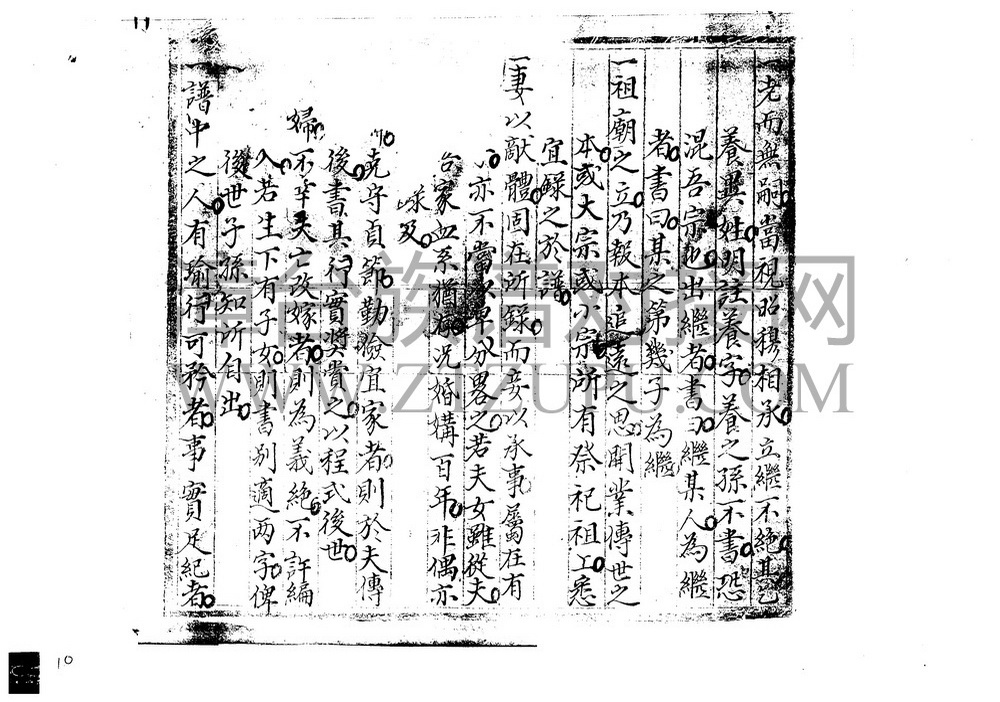 一老而無嗣當視昭穆相承立繼不絕其
養異姓明註養字養之孫不書恐
混吾宗也出繼者書曰繼某人為繼
者書曰某之第幾子為繼
一祖廟之立乃報本追遠之思開業傳世之
本或大宗或小宗所有祭祀祖工悉
宜録之於譜
一妻以敵體固在所録而妾以承事屬在有
亦不當以卑分畧之若夫女雖從夫
家血系猶 況婚構百年非偶亦
及
克守貞節勤儉宜家者則於夫傳
後書其行實奬賞之以程式後世
婦不幸夫亡改嫁者則為義絕不許編
入若生下有子女則書別適两字俾
後世子孫知所自出
一譜中之人有瑜行可矜者事實足紀者
皇台族譜對接网
WWW.ZIZUPU.COM
10